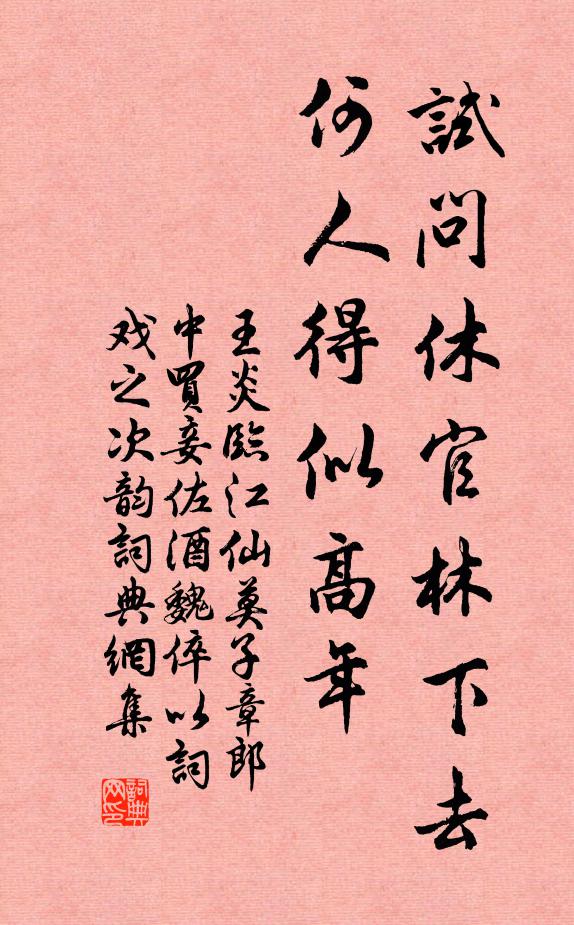 試問休官林下去
何人得似高年
王炎臨江仙莫子章郎
中買妾佐酒魏倅以詞
戏之次韵詞典網集
詞典网印